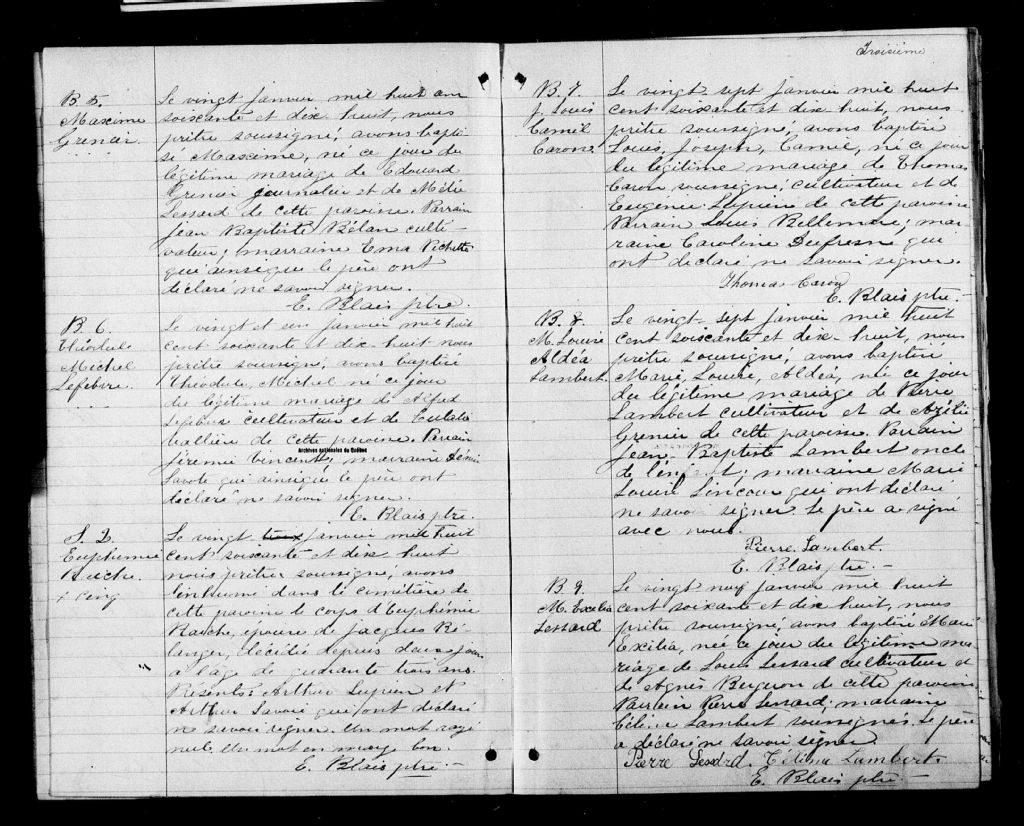 B. 5.
Maxime
Grenier.
Le vingt janvier mil huit cen
soixante et dix huit, nous
prêtre soussigné, avons bapti-
sé Maxime, né ce jour du
légitime mariage de Edouard
Grenier journalier et de Mélie
Lessard de cette paroisse. Parrain
Jean Baptiste Bélan culti-
vateur; marraine Ema Pichette
qui ainsi que le père ont
déclaré ne savoir signer.
E. Blais ptre.
B. 6.
Théodule
Michel
Lefebvre.
Le vingt et un janvier mil huit
cent soixante et dix-huit nous
prêtre soussigné, avons baptisé
Théodule, Michel né ce jour
du légitime mariage de Alfred
Lefebvre cultivateur et de Eulalie
Vallière de cette paroisse. Parrain
Archives nationales du Québec
Jérémie Vincent; marraine
Savoie qui ainsi que le père ont
déclaré ne savoir signer.
E. Blais ptre.
S. 2.
Euphémie
Rauche.
+ cinq
Le vingt janvier mil huit
cent soixante et dix huit
nous prêtre soussigné, avons
inhumé dans le cimetière de
cette paroisse le corps d'Euphémie
Rauche, épouse de Jacques Bé-
langer, décédée depuis deux jours
a l'âge de quarante trois ans.
Présents: Arthur Lupien et
Arthur Savoie qui ont déclaré
ne savoir signer. Un mot rayé
nul. Un mot en marge bon.
E. Blais ptre.-
Troisième
B. 7.
J. Louis
Camil
Caron.
Le vingt sept janvier mil huit
cent soixante et dix huit, nous
prêtre soussigné, avons baptisé
Louis, Joseph, Camil, né ce jour
du légitime mariage de Thomas
Caron soussigné, cultivateur et de
Eugénie Lupien de cette paroisse.
Parrain Louis Bellemare; mar-
raine Caroline Dufresne qui
ont déclaré ne savoir signer.
Thomas Caron
E. Blais ptre.-
B. 8.
M. Louise
Aldéa
Lambert.
Le vingt-sept janvier mil huit
cent soixante et dix-huit, nous
prêtre soussigné, avons baptisé
Marie, Louise, Aldéa, née ce jour
du légitime mariage de Pierre
Lambert cultivateur et de Azélie
Grenier de cette paroisse. Parrain
Jean-Baptiste Lambert oncle
de l'enfant; marraine Marie
Louise Lincour qui ont déclaré
ne savo signer. Le père a signé
avec nous.
Pierre Lambert.
E. Blais ptre.-
B. 9.
M. Excelia
Lessard
Le vingt neuf janvier mil huit
cent soixante et dix huit, nous
prêtre soussigné, avons baptisé Marie
Exilia, née ce jour du légitime ma-
riage de Louis Lessard cultivateur et
de Agnès Bergeron de cette paroisse.
Parrain Pierre Lessard; marraine
Céline Lambert soussignés. Le père
a déclaré ne savoir signer.
Pierre Lesard. Célina Lambert.
E. Blais ptre.-